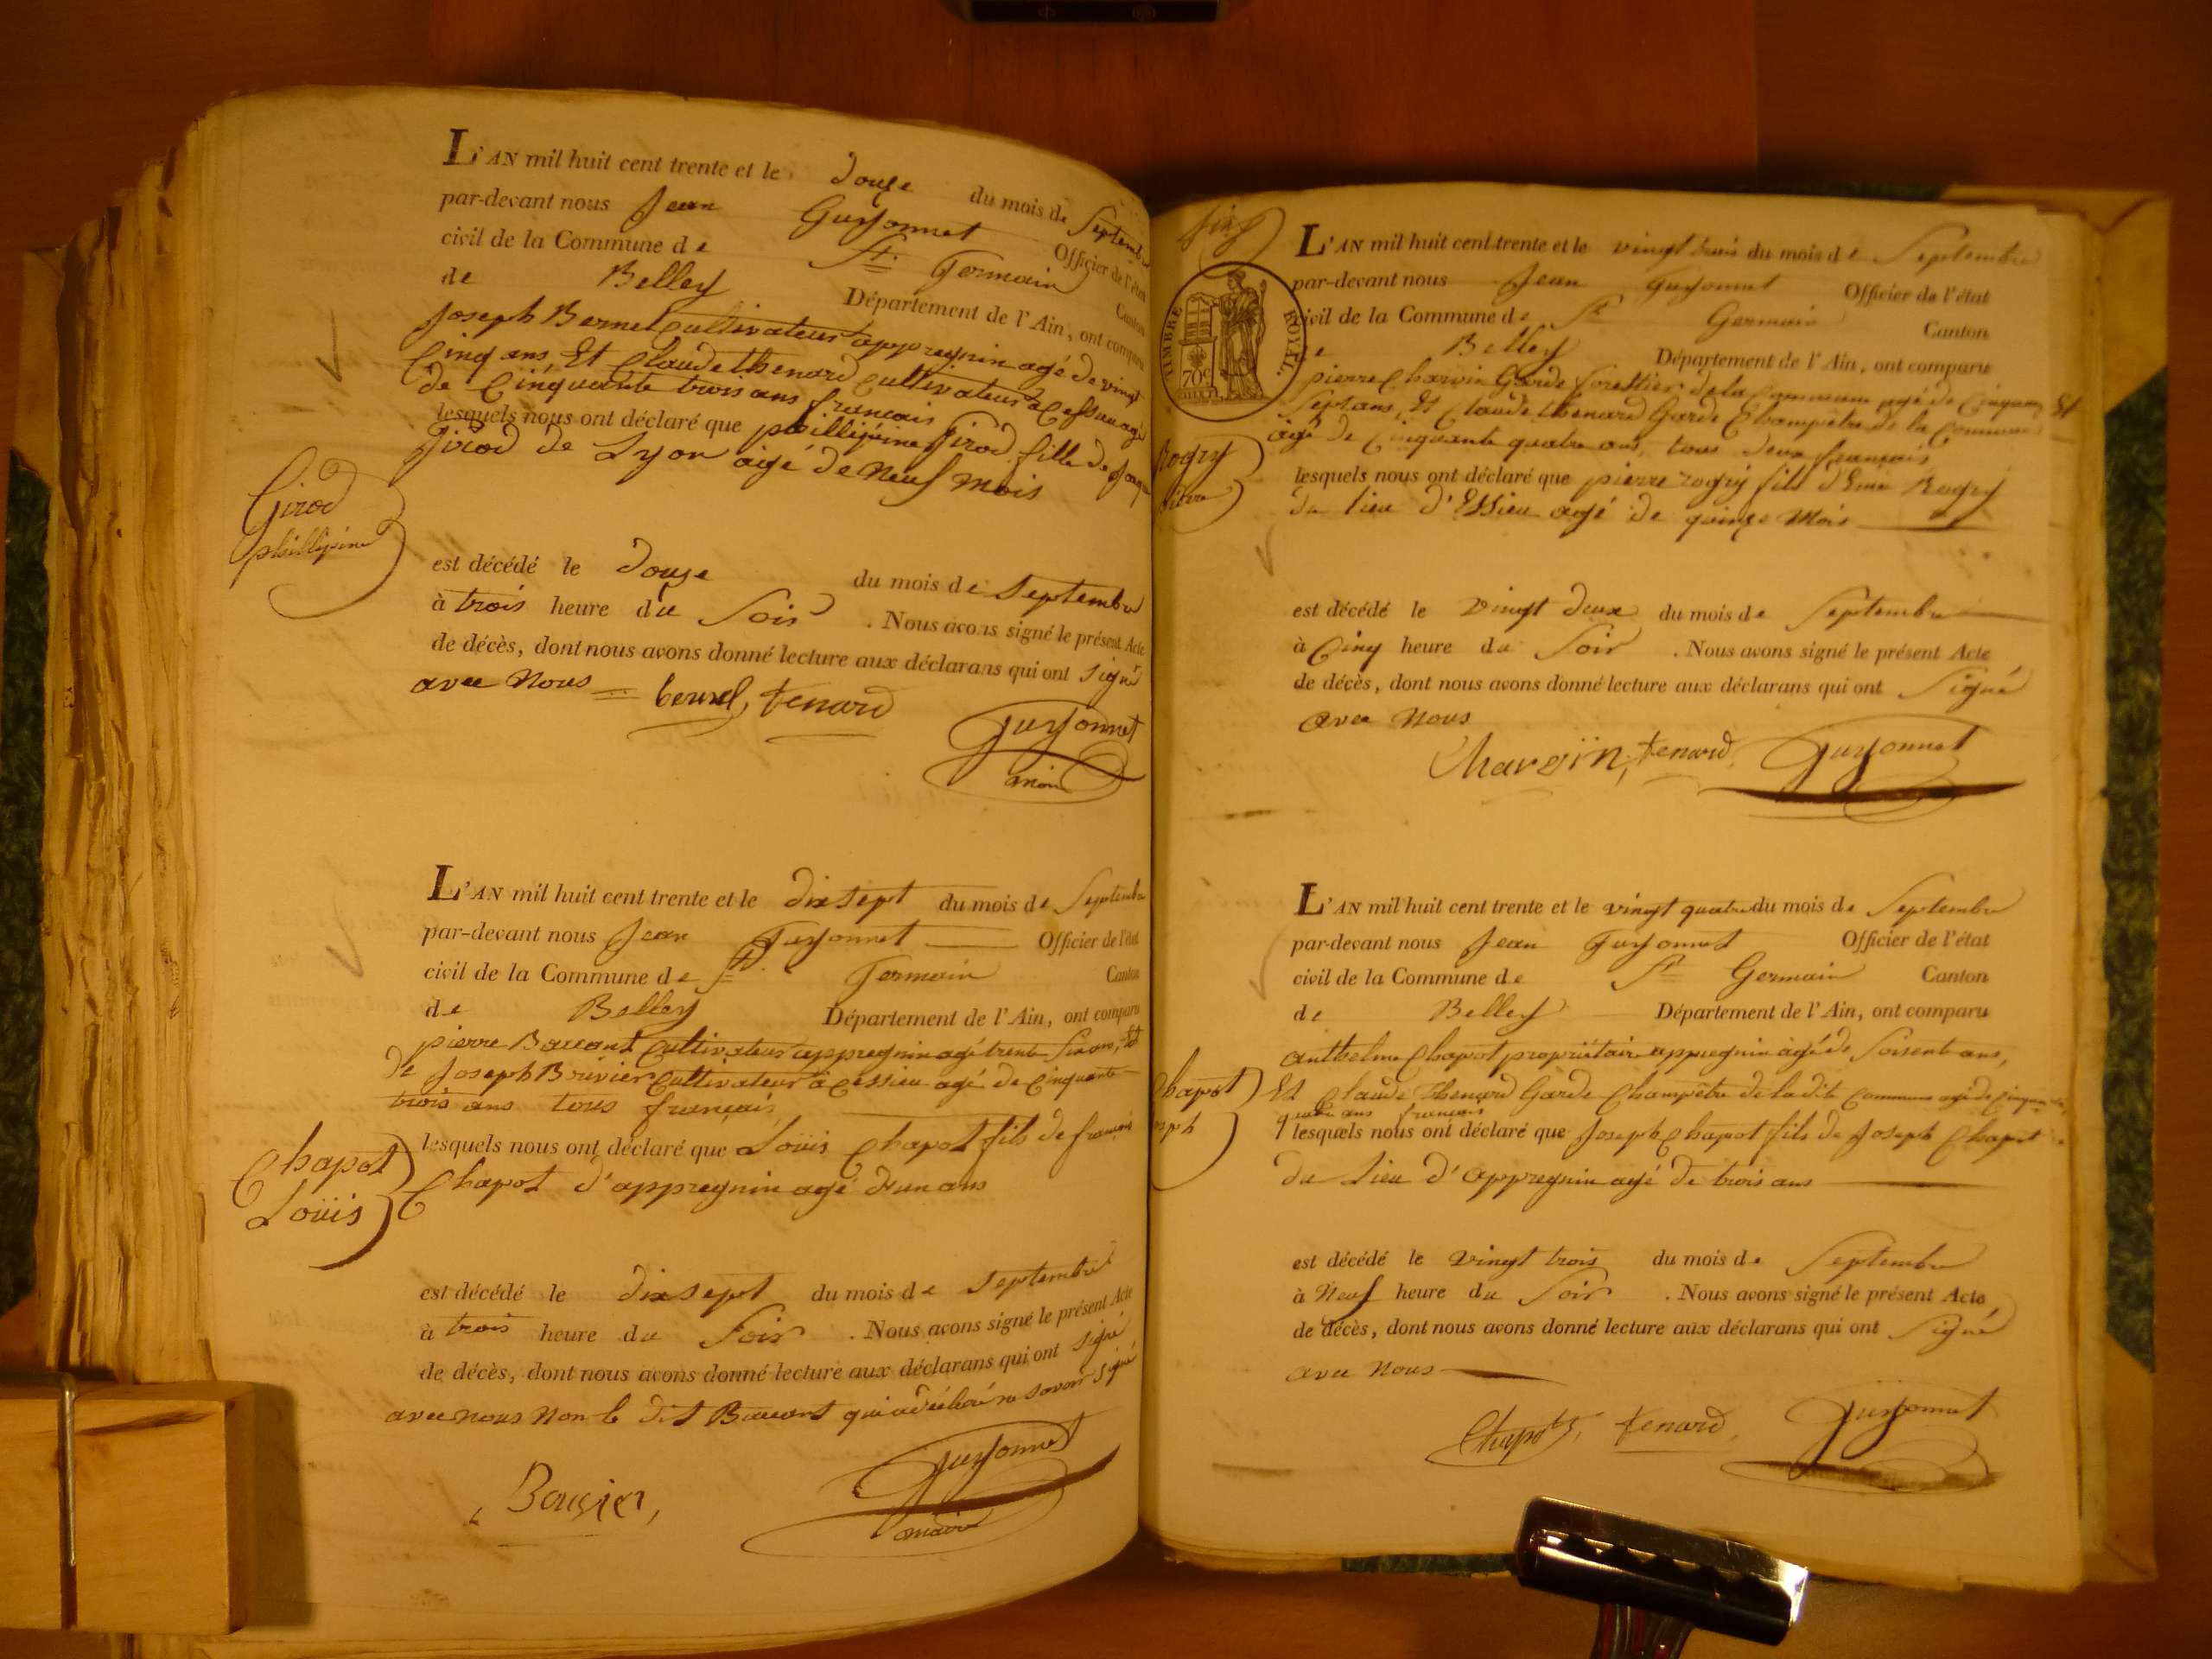 L'AN mil huit cent trente et le douze du mois de Septembre
par-devant nous Jean Guyonnet Officier de l'état
civil de la Commune de St. Germain Canton
de Belley Département de l'Ain, ont comparu
Joseph Bernel cultivateur appregnin agé de vingt
Cinq ans Et Claude thenard cultivateur a Cessieu agé
de Cinquante trois ans français
lesquels nous ont déclaré que phillipine Girod fille de Jaque
Girod de Lyon agé de Neuf Mois
Girod
phillipine
est décédé le douze du mois de Septembre
à trois heure du Soir . Nous avons signé le présent Acte
de décès, dont nous avons donné lecture aux déclarans qui ont signé
avec Nous bernel, tenard
Guyonnet
maire
L'AN mil huit cent trente et le dix sept du mois de Septembre
par-devant nous Jean Guyonnet Officier de l'état
civil de la Commune de St. Germain Canton
de Belley Département de l'Ain, ont comparu
pierre cultivateur appregnin agé trente Six ans, Et
de Joseph Bouvier Cultivateur à Cessieu agé de Cinquante
trois ans tous français
lesquels nous ont déclaré que Loüis Chapot fils de françois
Chapot d'appregnin agé d'un ans
Chapot
Loüis
est décédé le dix sept du mois de Septembre
à trois heure du Soir . Nous avons signé le présent Acte
de décès, dont nous avons donné lecture aux déclarans qui ont signé
avec nous Non le dit qui a déclaré ne savoir signé
Bouvier,
Guyonnet
maire
TIMBRE ROYAL.
70c
L'AN mil huit cent trente et le vingt trois du mois de Septembre
par-devant nous Jean Guyonnet Officier de l'état
civil de la Commune de St Germain Canton
de Belley Département de l'Ain, ont comparu
pierre Charvin Garde forettier de la Commune agé de Cinquante
Sept ans, Et Claude thenard Garde Champêtre de la Commune
agé de Cinquante quatre ans, tous deux français
lesquels nous ont déclaré que pierre rogry fils d'Eme Rogry
du lieu d'Essieu agé de quinze Mois
Rogry
pierre
est décédé le vingt deux du mois de Septembre
à Cinq heure du Soir . Nous avons signé le présent Acte
de décès, dont nous avons donné lecture aux déclarans qui ont Signé
avec Nous
Charvin, tenard, Guyonnet
L'AN mil huit cent trente et le vingt quatre du mois de Septembre
par-devant nous Jean Guyonnet Officier de l'état
civil de la Commune de St Germain Canton
de Belley Département de l'Ain, ont comparu
anthelme Chapot propriétaire appregnin àgé de Soisente ans,
Et Claude thenard Garde Champêtre de la dite Commune agé de Cinquante
quatre ans français
lesquels nous ont déclaré que Joseph Chapot fils de Joseph Chapot
du Lieu d'appregnin agé de trois ans
Chapot
seph
est décédé le vingt trois du mois de Septembre
à Neuf heure du Soir . Nous avons signé le présent Acte
de décès, dont nous avons donné lecture aux déclarans qui ont Signé
avec Nous
Chapot, tenard, Guyonnet